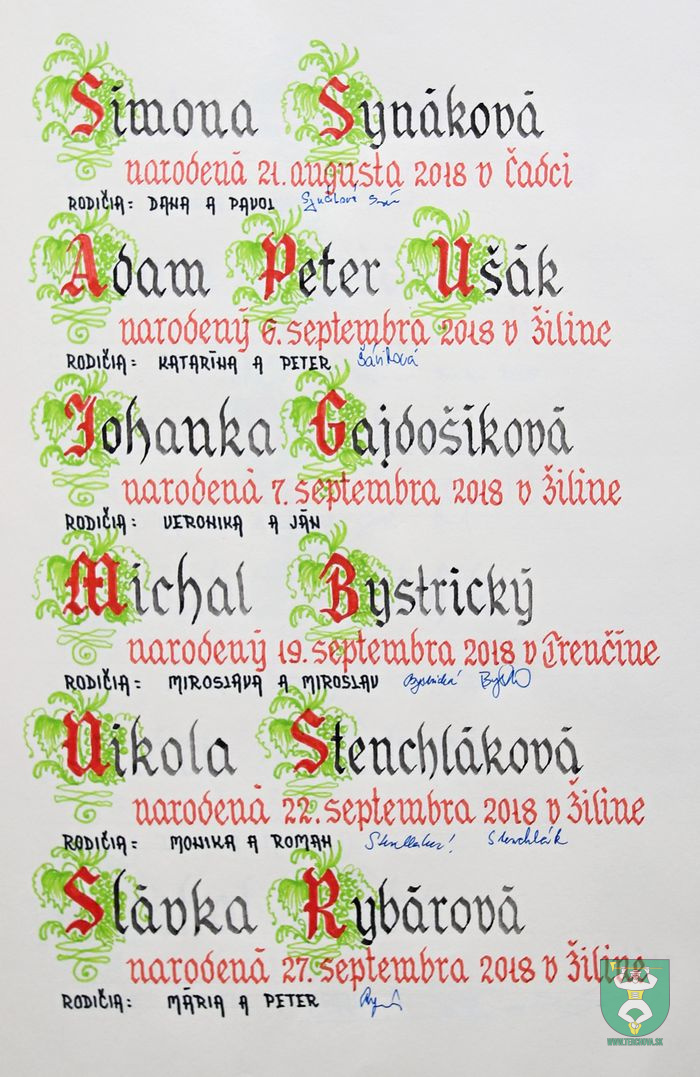 Simona Synáková
narodená 21. augusta 2018 v Čadci
RODIČIA: DANA A PAVOL
Adam Peter Ušák
narodený 6. septembra 2018 v Žiline
RODIČIA: KATARÍNA A PETER
Johanka Gajdošíková
narodená 7. septembra 2018 v Žiline
RODIČIA: VERONIKA A JÁN
Michal Bystrický
narodený 19. septembra 2018 v Trenčíne
RODIČIA: MIROSLAVA A MIROSLAV Bystrická
Nikola Stenchláková
narodená 22. septembra 2018 v Žiline
RODIČIA: MONIKA A ROMAN Stenchlák
Slávka Rybárová
narodená 27. septembra 2018 v Žiline
RODIČIA: MÁRIA A PETER
WWW.TERCHOVA.SK